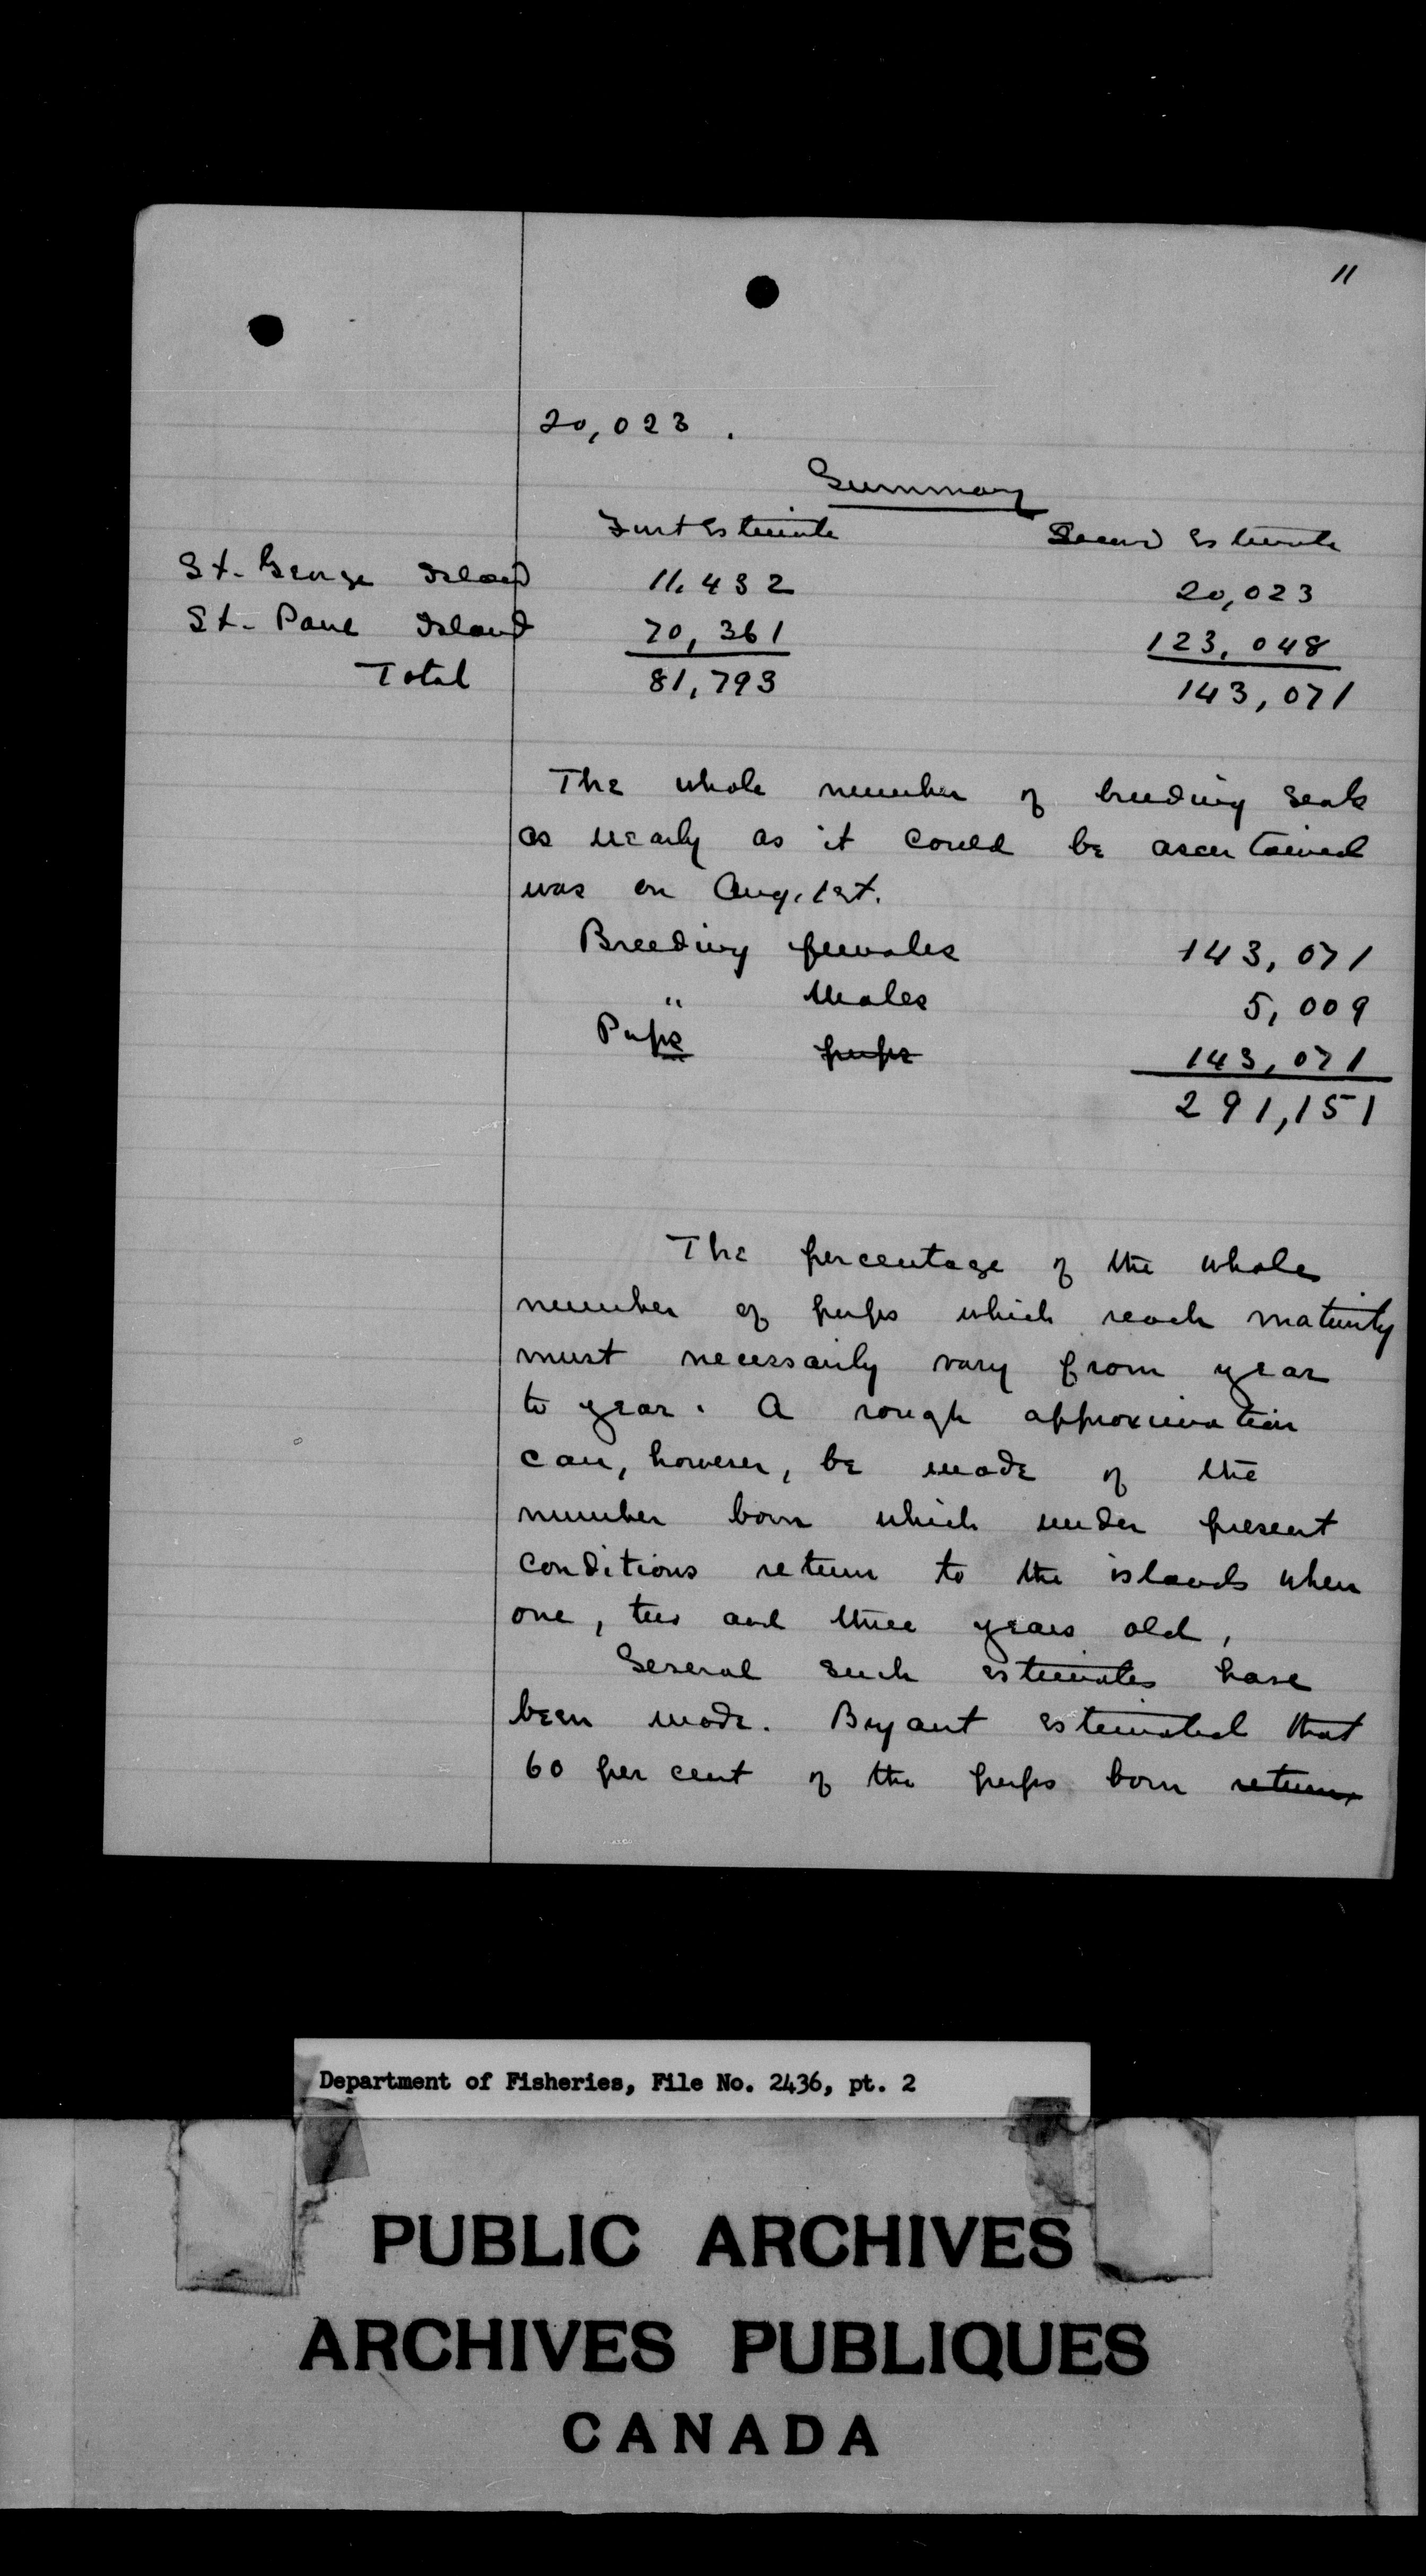 11
20,023.
Summary
First Estimate Second Estimate
St. George Island 11,432 20,023
St. Paul Island 70,361 123,048
Total 81,793 143,071
The whole number of breeding seals
as nearly as it could be ascertained
was on Aug. 1st.
Breeding females 143,071
" Males 5,009
Pups pups 143,071
291,151
The percentage of the whole
number of pups which reach maturity
must necessarily vary from year
to year. A rough approximation
can, however, be made of the
number born which under present
conditions return to the islands when
one, two and three years old,
Several such estimates have
been made. Bryant estimated that
60 per cent of the pups born return
Department of Fisheries, File No. 2436, pt. 2
PUBLIC ARCHIVES
ARCHIVES PUBLIQUES
CANADA